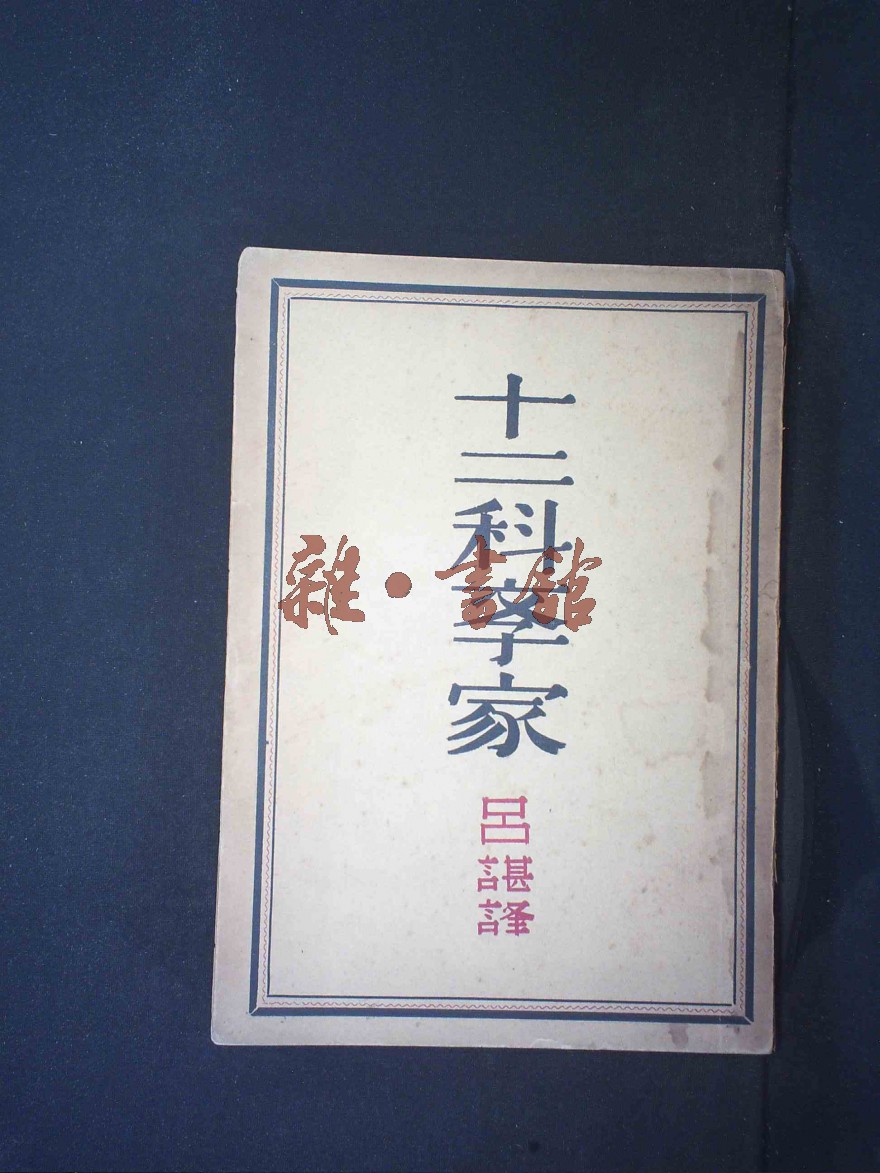 十二科學家
呂諶譯
雜·書館